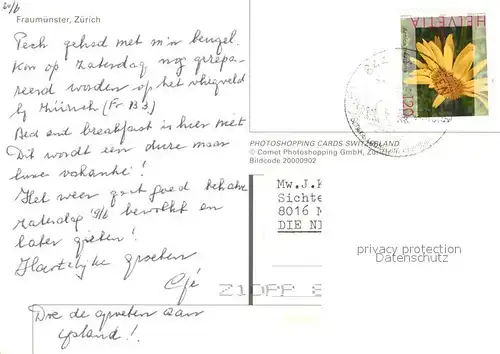 20/6
Fraumünster, Zürich
Pech gehad met m'n beugel.
Kon op Zaterdag nog gerepa-
reerd worden op het vliegveld
bij Zürich (Fr 133)
Bed and breakfast is hier niet
Dit wordt een dure maar
luxe vakantie!
Het weer gaat goed behalve
zaterdag 19/6 bewolkt en
later gieten!
Hartelijke groeten
Doe de groeten aan
IJsland!!
HELVETIA
120
PHOTOSHOPPING CARDS SWITZERLAND
© Comet Photoshopping GmbH, Zürich
Bildcode 20000902
Mw.J.
Sichte
8016 M
DIE NI
privacy protection
Datenschutz